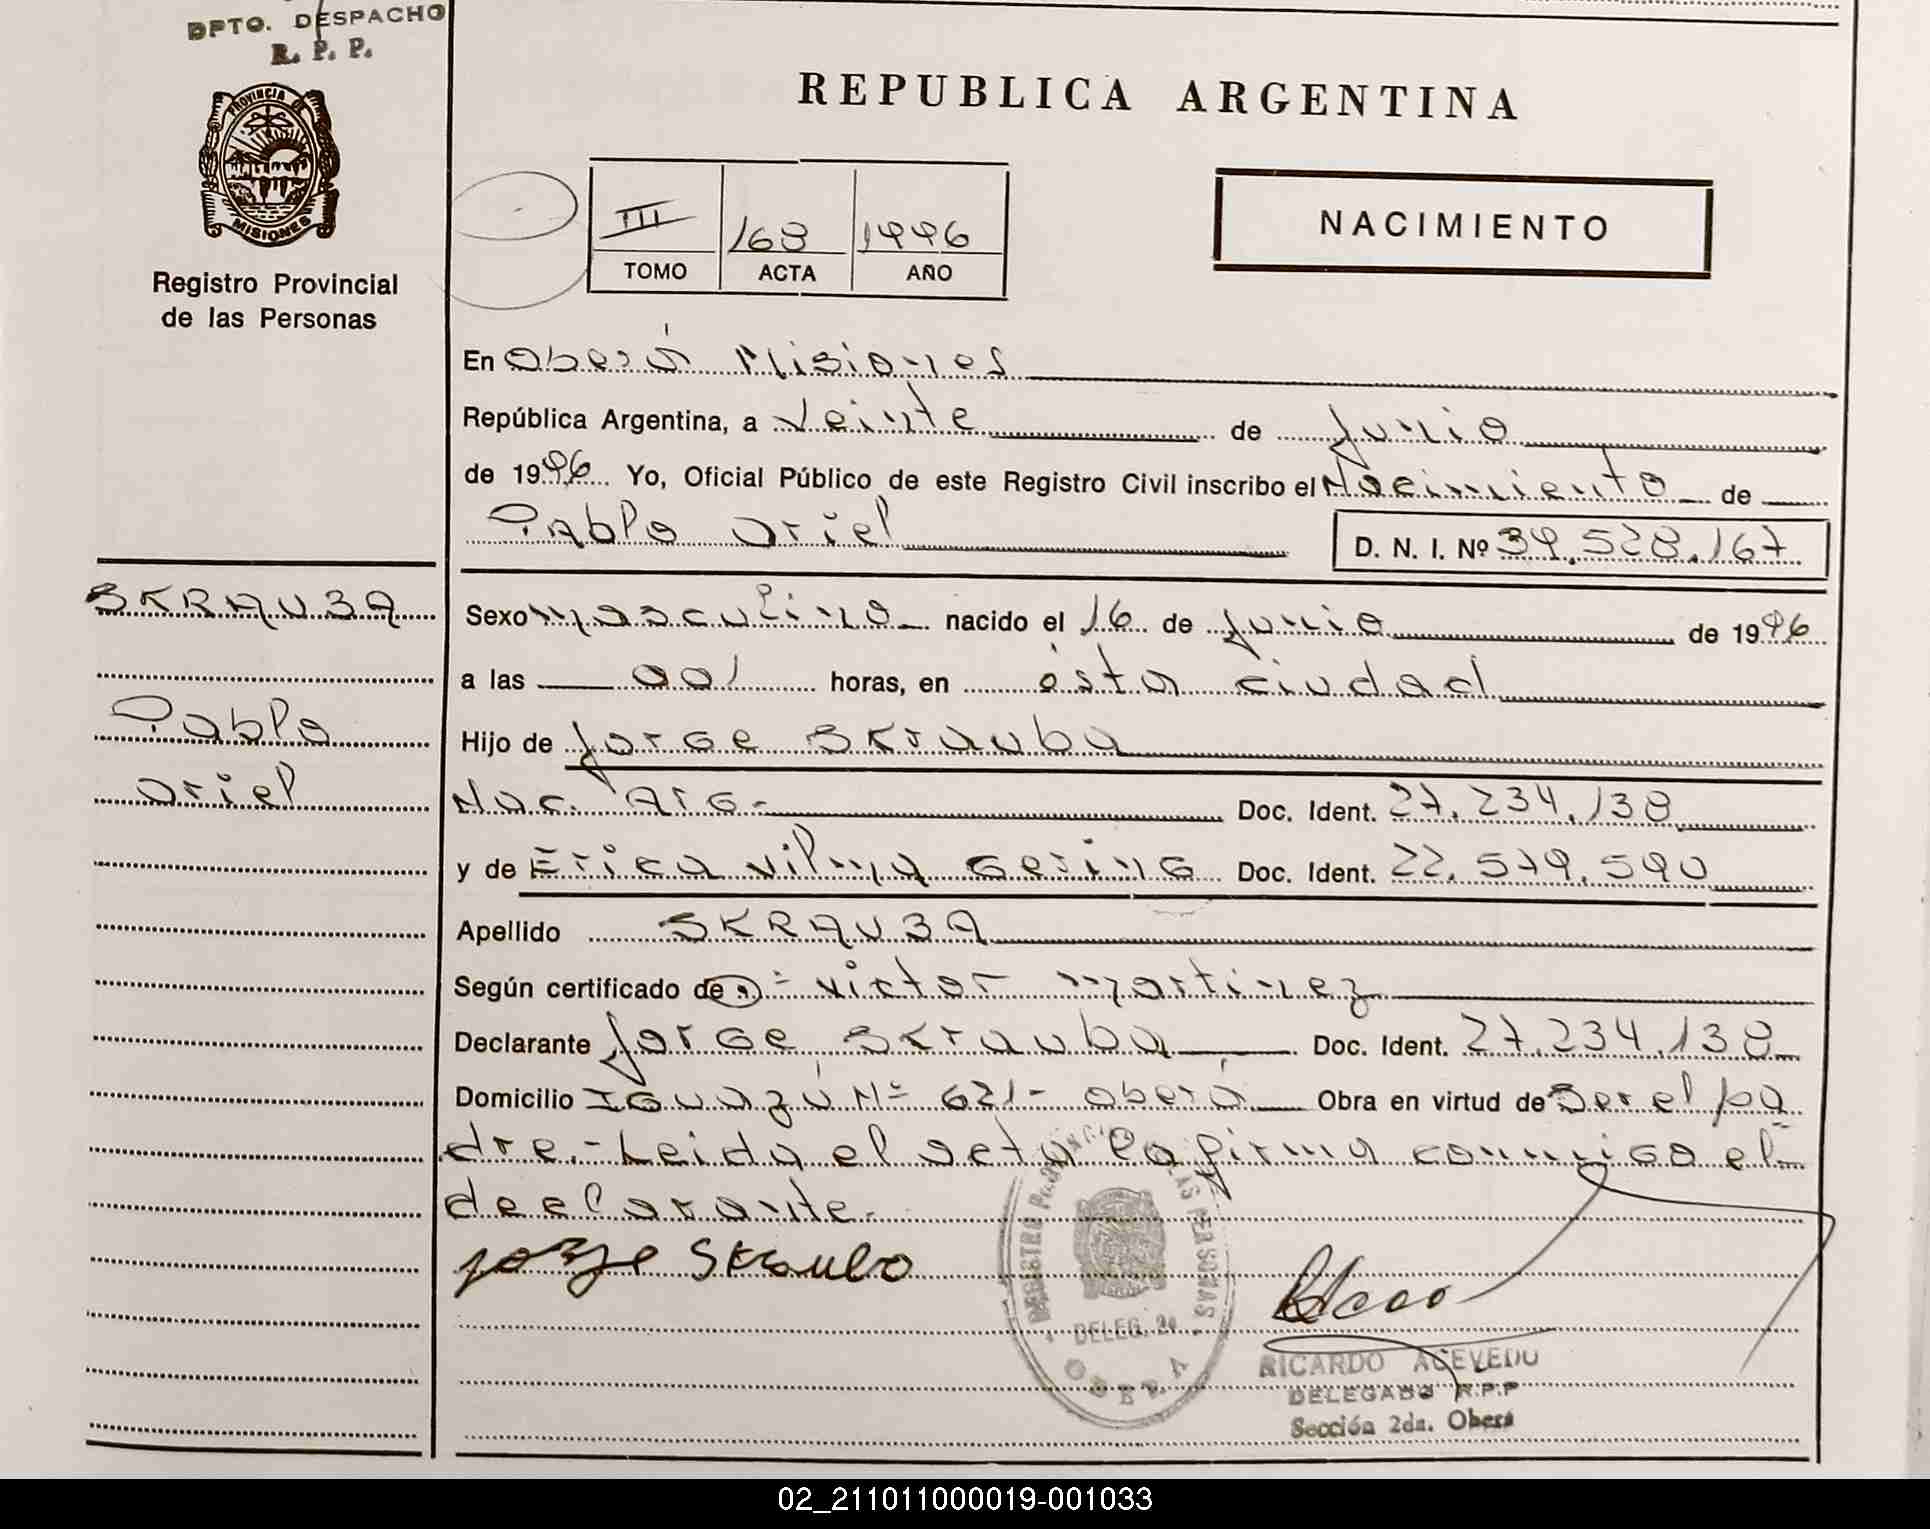 DPTO. DESPACHO
R. P. P.
PROVINCIA DE
MISIONES
Registro Provincial
de las Personas
REPUBLICA ARGENTINA
III 168 1996
TOMO ACTA AÑO
NACIMIENTO
En Oberá Misiones
República Argentina, a Veinte de Junio
de 1996 Yo, Oficial Público de este Registro Civil inscribo el Nacimiento de
Pablo Oriel D. N. I. Nº 39.528.167
SKRAUBA
Pablo
Oriel
Sexo masculino nacido el 16 de junio de 1996
a las 001 horas, en ésta ciudad
Hijo de Jorge Skrauba
Nac. Arg- Doc. Ident. 27.234.138
y de Erica Vilma Gering Doc. Ident. 22.579.590
Apellido SKRAUBA
Según certificado de Victor Martinez
Declarante Jorge Skrauba Doc. Ident. 27.234.138
Domicilio Iguazú Nº 621- Oberá Obra en virtud de Ser el pa
dre.- Leida el acta la firma conmigo el
declarante.
Jorge Skrauba
REGISTRO PROVINCIAL DE LAS PERSONAS
DELEG. 2a
OBERA
RICARDO ACEVEDO
DELEGADO R.P.P
Sección 2da. Oberá
02_211011000019-001033